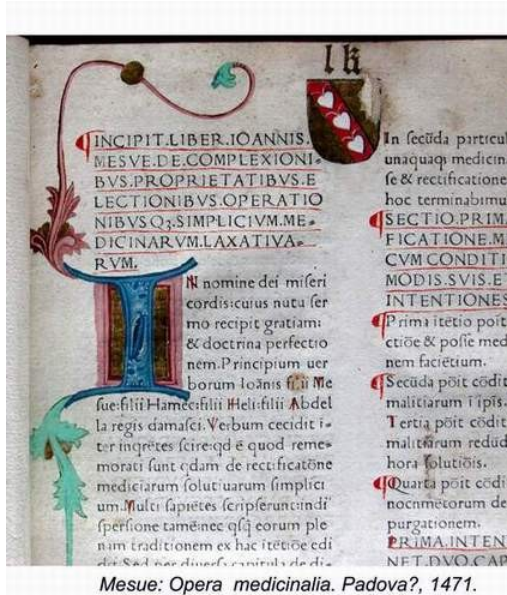 lk
INCIPIT.LIBER.IOANNIS.
MESVE.DE.COMPLEXIONI-
BVS.PROPRIETATIBVS.E
LECTIONIBVS.OPERATIO
NIBVS.Qꝫ.SIMPLICIVM.ME-
DICINARVM.LAXATIVA-
RVM.
IN nomine dei miseri
cordis:cuius nutu ser
mo recipit gratiam:
& doctrina perfectio
nem.Principium uer
borum Ioānis filii Me
sue:filii Hamec:filii Heli:filii Abdel
la regis damasci.Verbum cecidit i-
ter inqrētes scire:qd ē quod reme-
morati sunt qdam de rectificatōne
mediciarum solutiuarum simplici
um.Multi sapiētes scripserunt:indi
spersione tamē:nec qsq eorum ple
nam traditionem ex hac itētiōe edi
dit.Sed per diuersa capitula de di-
In secūda particul
unaquaqȝ medicin
se & rectificatione
hoc terminabimu
SECTIO.PRIMA
FICATIONE.M
CVM CONDITI
MODIS.SVIS.ET
INTENTIONES
Prima itētio poit
ctiōe & posse med
nem faciētium.
Secūda pōit cōdit
malitiarum i ipīs.
Tertia pōit cōdit
malitiarum redūd
hora solutiōis.
Quarta pōit cōdi
nocumētorum de
purgationem.
PRIMA.INTEN
NET.DVO.CAP
Mesue: Opera medicinalia. Padova?, 1471.